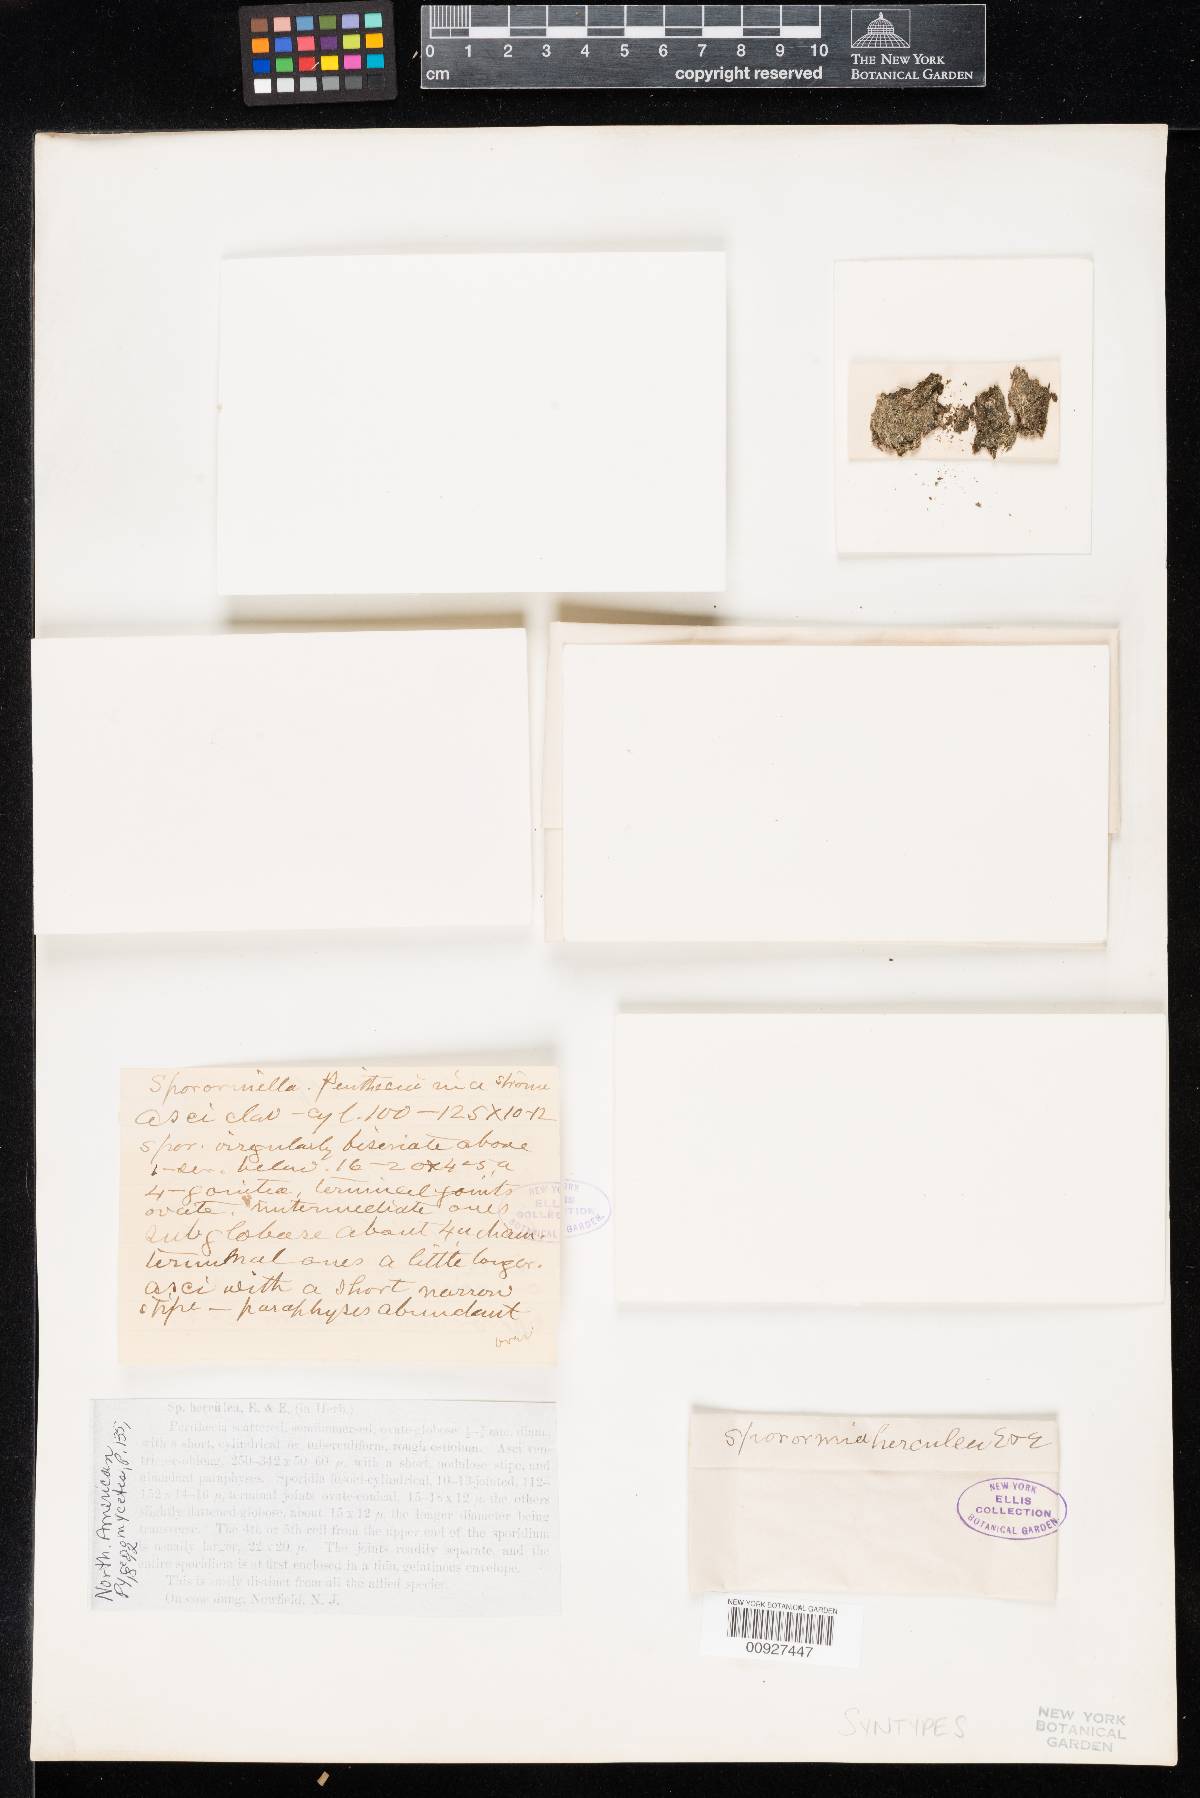 0 1 2 3 4 5 6 7 8 9 10
cm
copyright reserved
THE NEW YORK
BOTANICAL GARDEN
Sporormiella. Perithecia in a
asci clav-cyl. 100-125X10-12
spor. irregularly biseriate above
1-ser. below. 16-20x4-5
terminal joints
ovate, intermediate ones
subglobose about 4u diam.
terminal ones a little larger.
asci with a short narrow
stipe - paraphyses abundant
over
NEW YORK
ELLIS
COLLECTION
BOTANICAL GARDEN
North American
Pyrenomycetes, p. 135,
1892
Sp. herculea, E. & E. (in Herb.)
Perithecia scattered, semiimmersed, ovate-globose, mm. diam.,
with a short, cylindrical or tuberculiform, rough ostiolum. Asci ven-
tricose-oblong, 250-312 x 50-60 µ, with a short, nodulose stipe, and
abundant paraphyses. Sporidia fusoid-cylindrical, 10-13-jointed, 112-
152 x 14-16 µ, terminal joints ovate-conical, 15-18 x 12 µ, the others
slightly flattened-globose, about 15 x 12 µ, the longer diameter being
transverse. The 4th or 5th cell from the upper end of the sporidium
is usually larger, 22 x 20 µ. The joints readily separate, and the
entire sporidium is at first enclosed in a thin, gelatinous envelope.
This is easily distinct from all the allied species.
On cow dung, Newfield, N. J.
Sporormia herculea E&E
NEW YORK
ELLIS
COLLECTION
BOTANICAL GARDEN
NEW YORK BOTANICAL GARDEN
00927447
SYNTYPES
NEW YORK
BOTANICAL
GARDEN